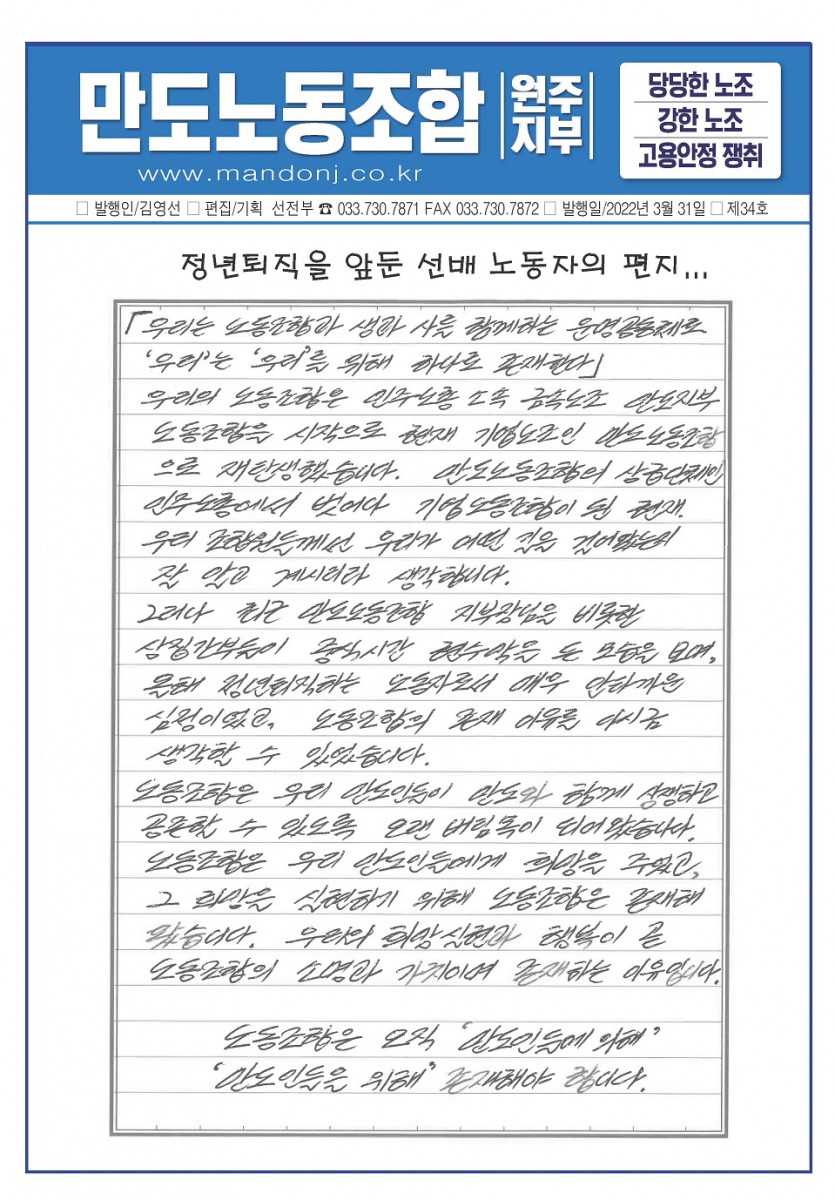 만도노동조합 원주지부
www.mandonj.co.kr
당당한 노조
강한 노조
고용안정 쟁취
□ 발행인/김영선 □ 편집/기획 선전부 ☎ 033.730.7871 FAX 033.730.7872 □ 발행일/2022년 3월 31일 □ 제34호
정년퇴직을 앞둔 선배 노동자의 편지...
「우리는 노동조합과 생과 사를 함께하는 운명공동체로
'우리'는 '우리'를 위해 하나로 존재한다」
우리의 노동조합은 민주노총 소속 금속노조 만도지부
노동조합을 시작으로 현재 기업노조인 만도노동조합
으로 재탄생했습니다. 만도노동조합의 상급단체인
민주노총에서 벗어나 기업노동조합이 된 현재.
우리 조합원들께선 우리가 어떤 길을 걸어왔는지
잘 알고 계시리라 생각합니다.
그러나 최근 만도노동조합 지부장님을 비롯한
상집간부들이 중식시간 현수막을 든 모습을 보며,
올해 정년퇴직하는 노동자로서 매우 안타까운
심정이었고, 노동조합의 존재 이유를 다시금
생각할 수 있었습니다.
노동조합은 우리 만도인들이 만도와 함께 상생하고
공존할 수 있도록 오랜 버팀목이 되어왔습니다.
노동조합은 우리 만도인들에게 희망을 주었고,
그 희망을 실현하기 위해 노동조합은 존재해
왔습니다. 우리의 희망실현과 행복이 곧
노동조합의 소명과 가치이며 존재하는 이유입니다.
노동조합은 오직 "만도인들에 의해"
"만도인들을 위해" 존재해야 합니다.